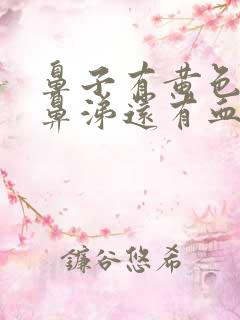 鼻子有黄色
鼻涕还有血
鐮谷悠希